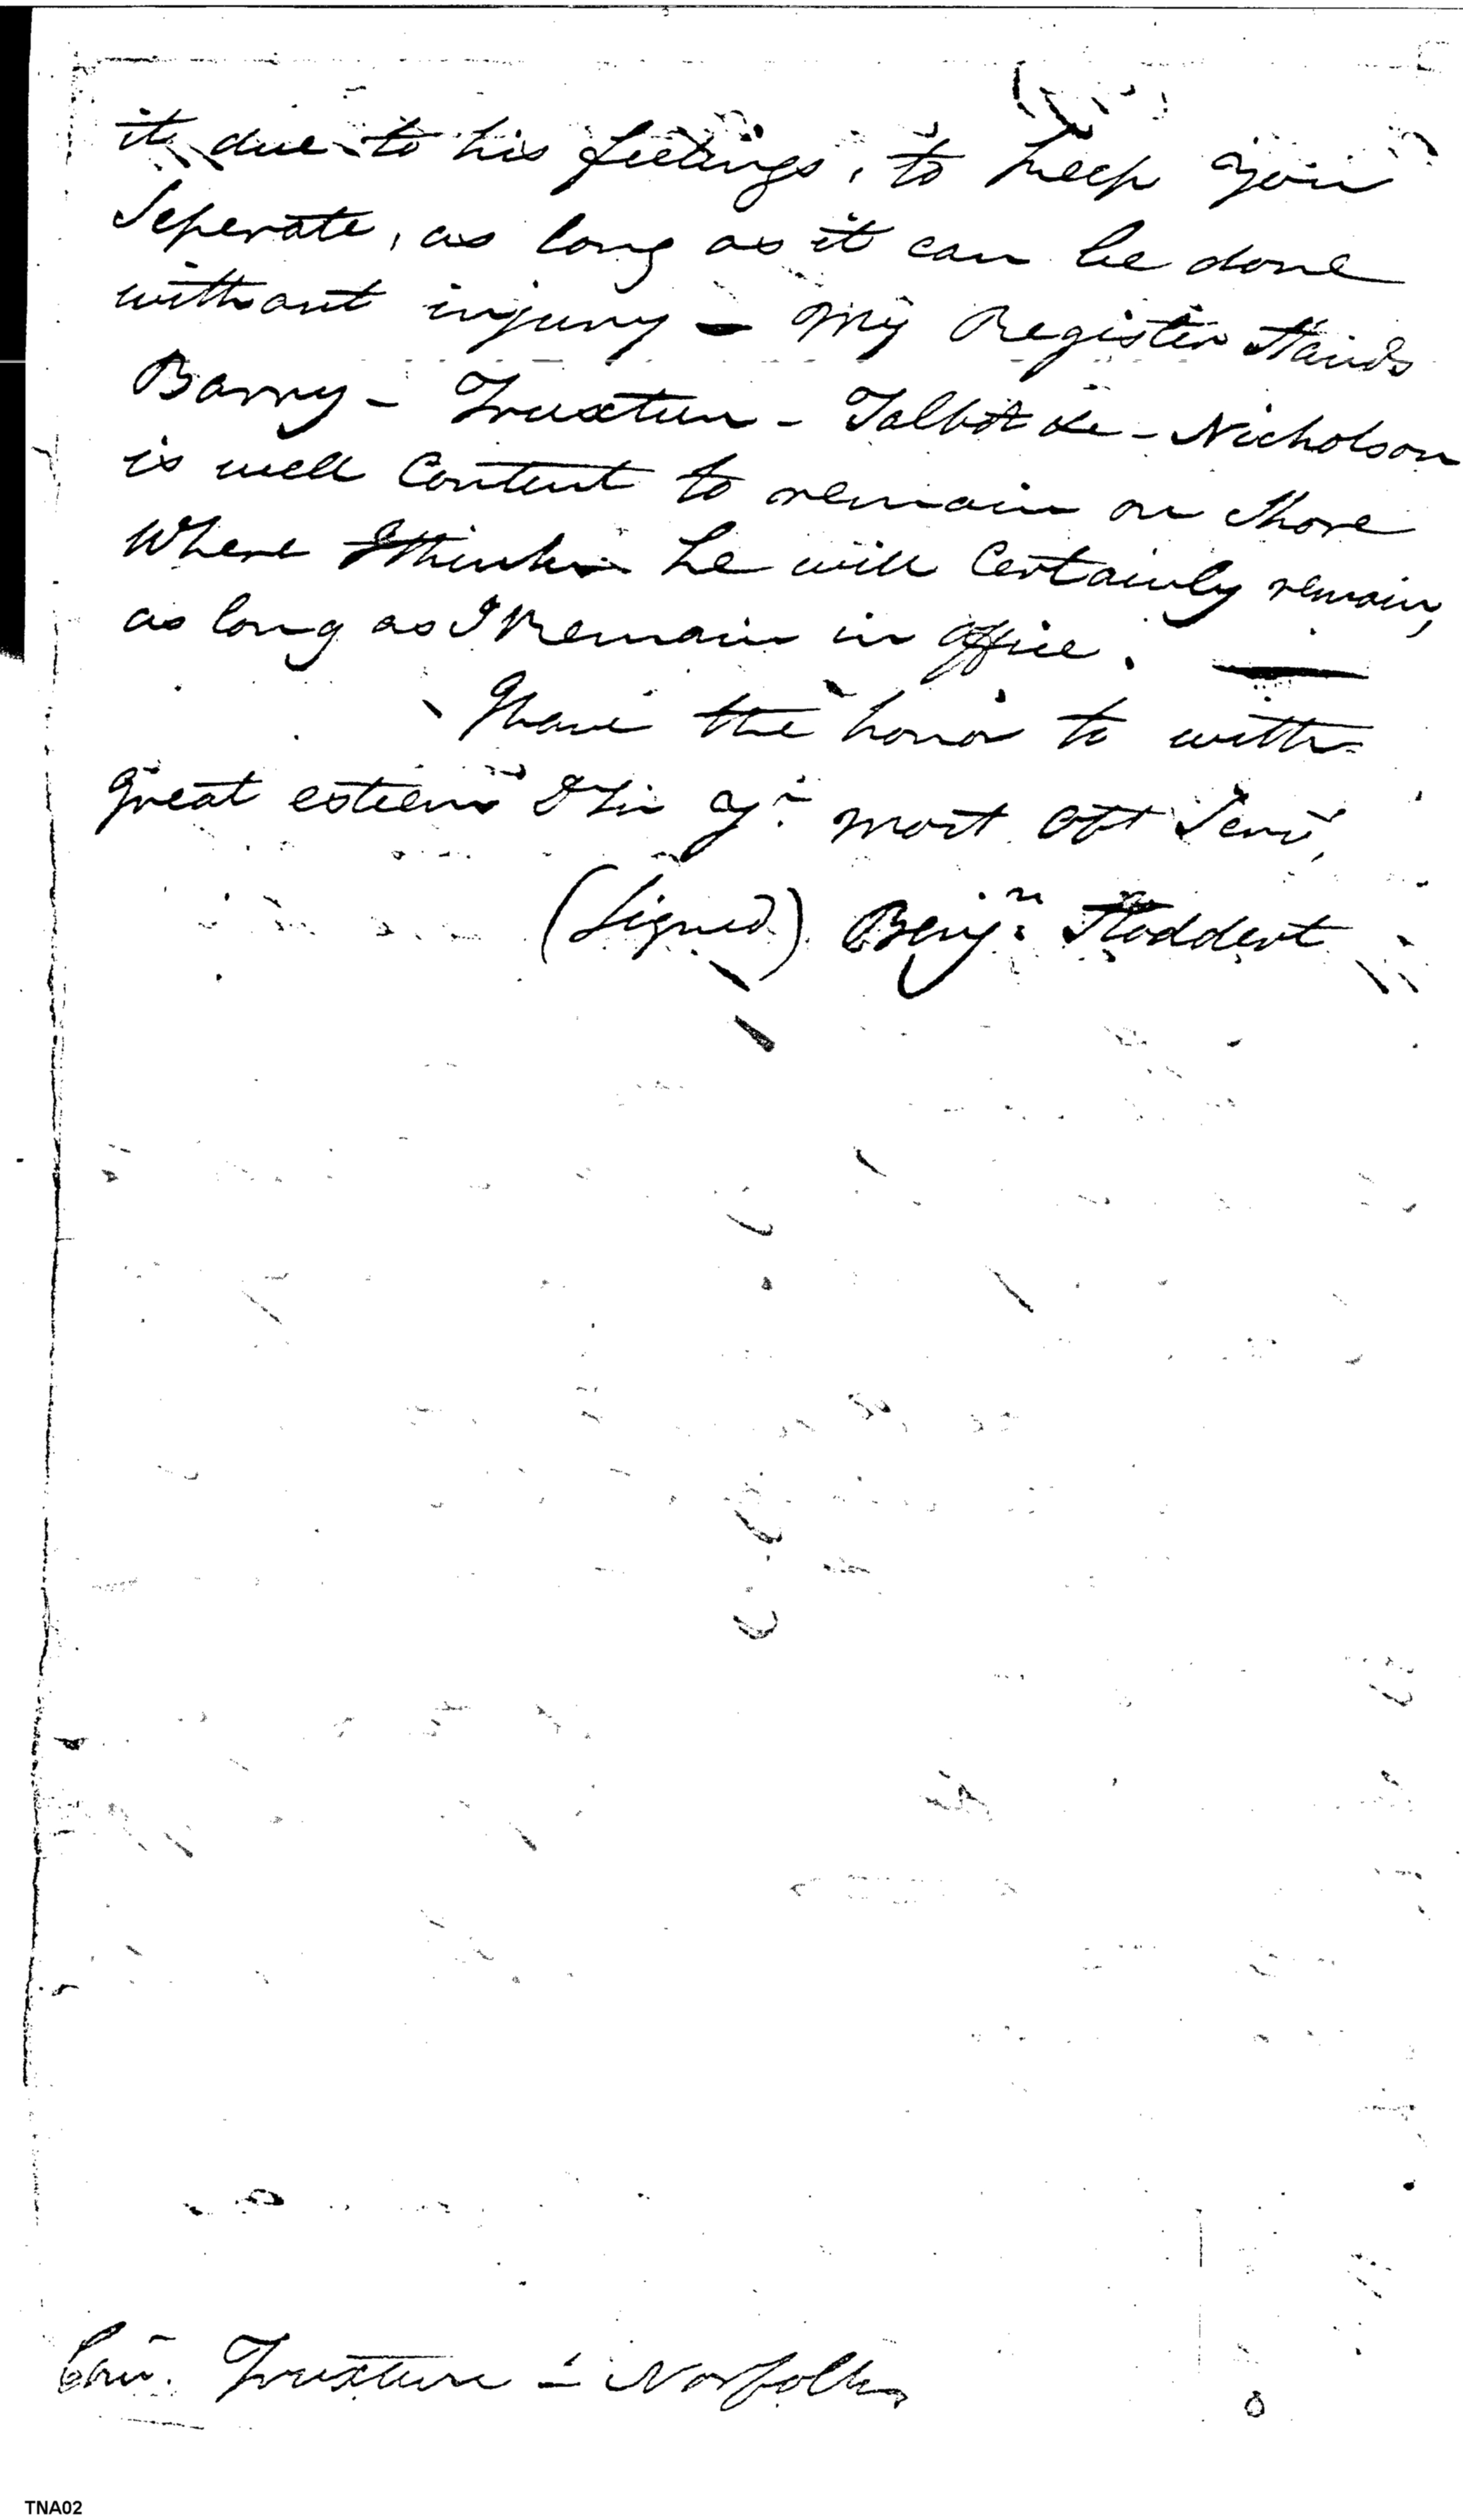 it due to his feelings, to keep you
Seperate, as long as it can be done
without injury — My Register Stands
Barry - Truxtun - Talbot &c - Nicholson
is well Content to remain on Shore
Where I think he will Certainly remain,
as long as I Remain in office. —
I have the honor to with
great esteem Sir yr most obt Servt,
(Signed) Benjn Stoddert
Truxtun - Norfolk
TNA02